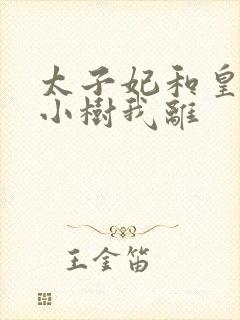 太子妃和皇
小樹我離
王金笛